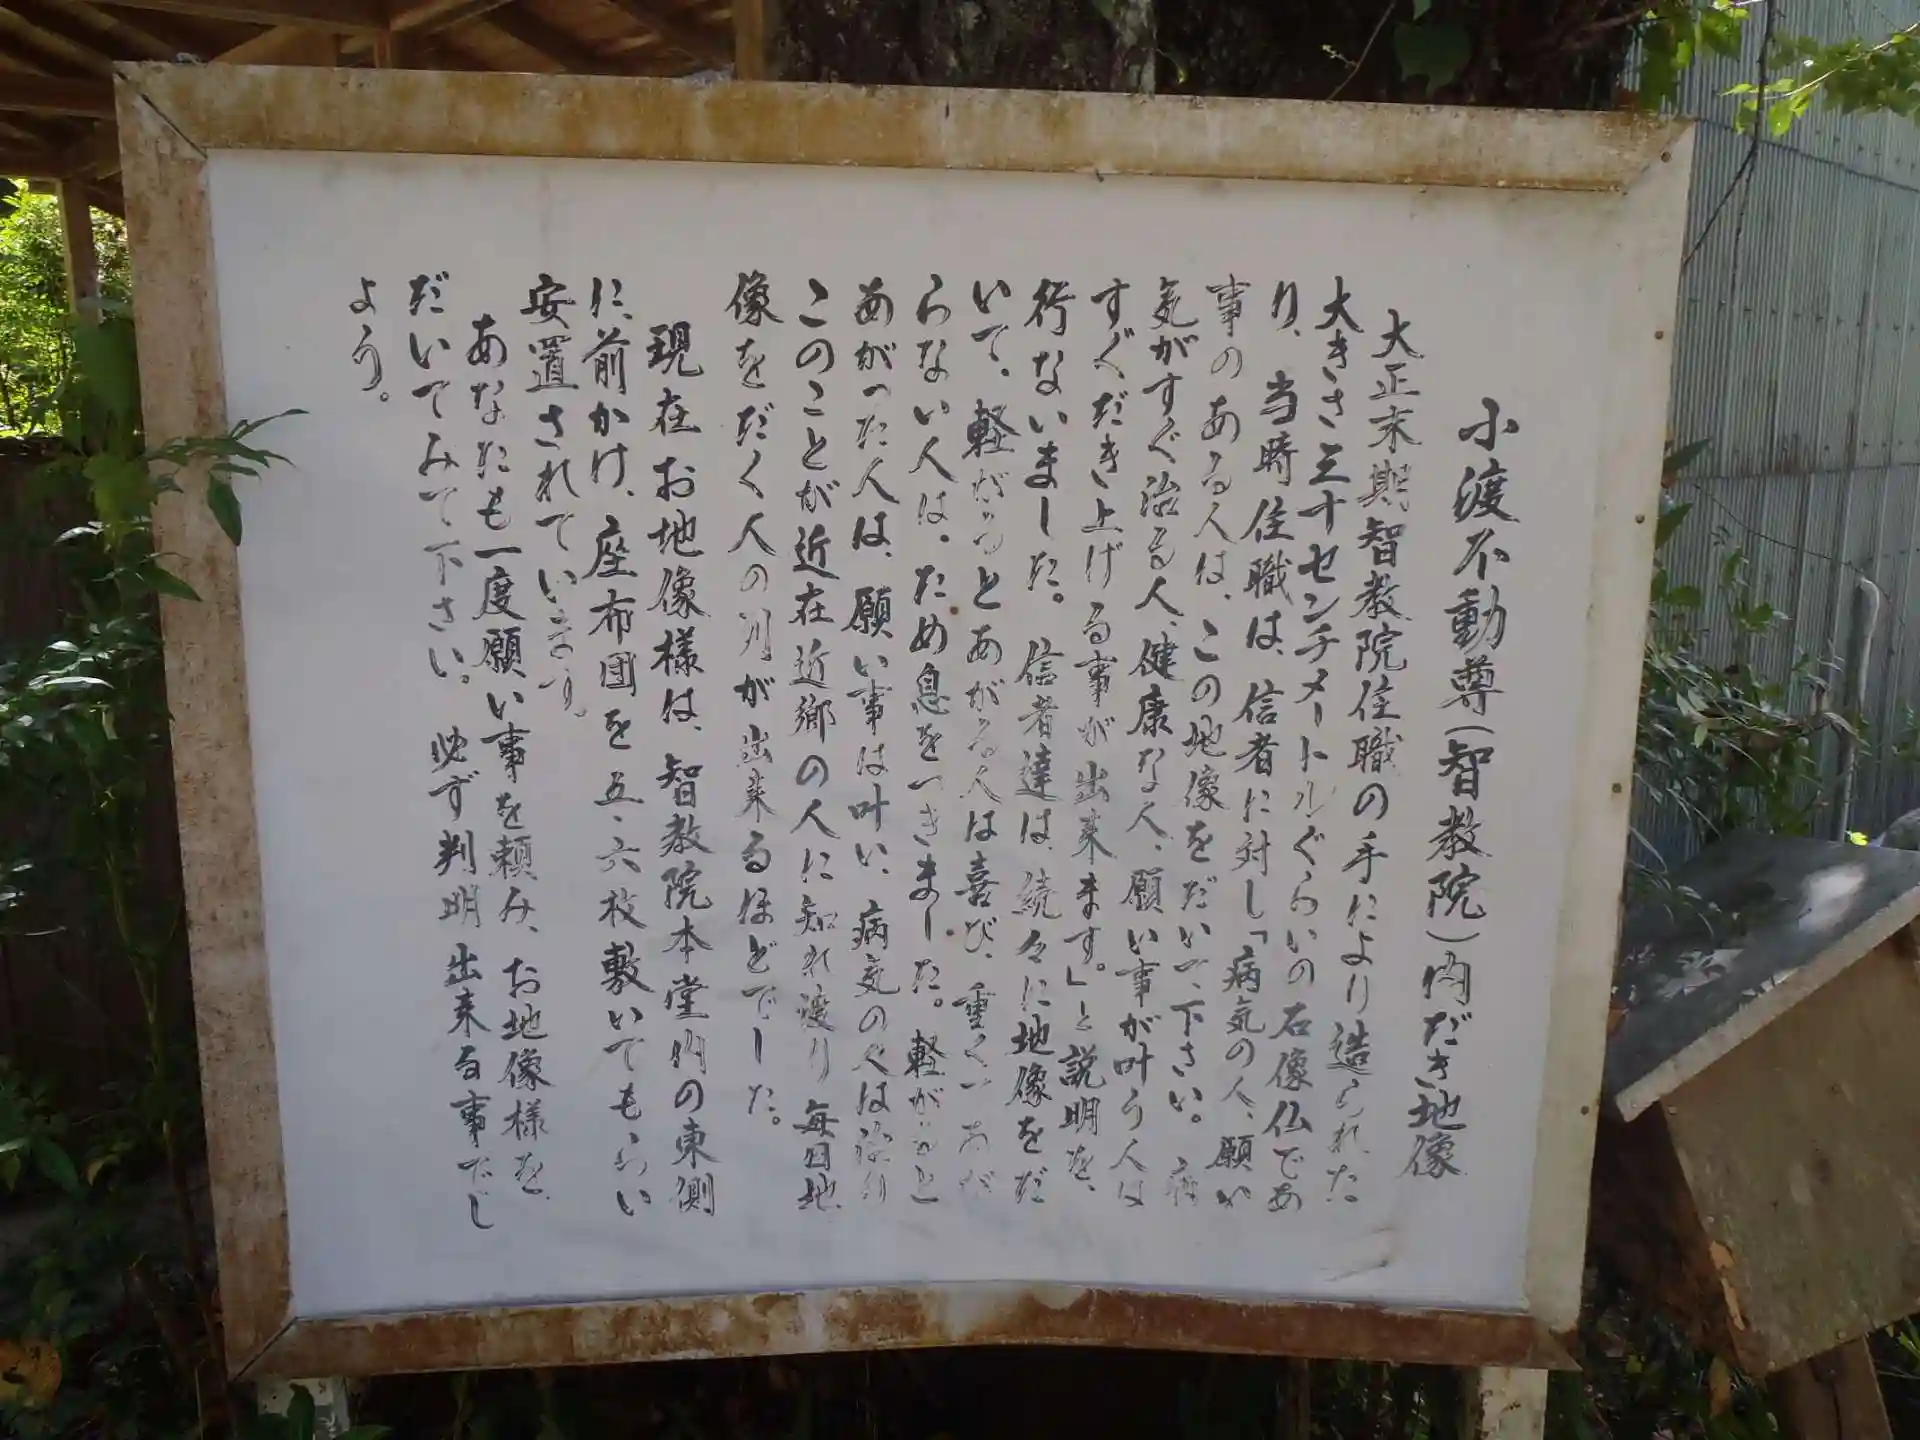 小渡不動尊(智教院)内だき地像
大正末期智教院住職の手により造られた
大きさ三十センチメートルぐらいの石像仏であ
り、当時住職は、信者に対し「病気の人、願い
事のある人は、この地像をだいて下さい。病
気がすぐ治る人、健康な人、願い事が叶う人は
すぐだき上げる事が出来ます。」と説明を、
行ないました。信者達は、続々に地像をだ
いて、軽がるとあがる人は喜び、重くてあが
らない人は、ため息をつきました。軽がると
あがった人は、願い事は叶い、病気の人は治り
このことが近在近郷の人に知れ渡り毎日地
像をだく人の列が出来るほどでした。
現在お地像様は、智教院本堂内の東側
に、前かけ、座布団を五、六枚敷いてもらい
安置されています。
あなたも一度願い事を頼み、お地像様を
だいてみて下さい。必ず判明出来る事でし
ょう。